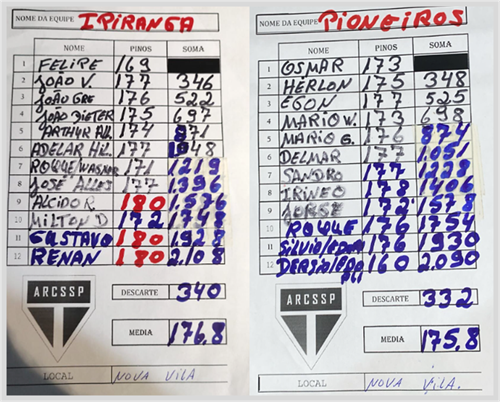 NOME DA EQUIPE IPIRANGA
NOME PINOS SOMA
1 FELIPE 169
2 JOÃO V. 177 346
3 JOÃO GRE 176 522
4 JOÃO DIETER 175 697
5 ARTHUR All. 174 871
6 ADELAR Hil. 177 1048
7 ROQUE/WAGNER 171 1219
8 JOSÉ ALLES 177 1396
9 ALCIDOR 180 1.576
10 MILTON D 172 1748
11 GUSTAVO 180 1928
12 RENAN 180 2.108
ARCSSP
DESCARTE 340
MEDIA 176,8
LOCAL NOVA VILA
NOME DA EQUIPE PIONEIROS
NOME PINOS SOMA
1 OSMAR 173
2 HERLON 175 348
3 EGON 177 525
4 MARIO W. 173 698
5 MARIO G. 176 874
6 DELMAR 177 1.051
7 SANDRO 177 1228
8 IRINEO 178 1406
9 JORGE 172 1578
10 ROQUE 176 1754
11 SILVIO/ 176 1930
12 160 2.090
ARCSSP
DESCARTE 332
MEDIA 175,8
LOCAL NOVA VILA.